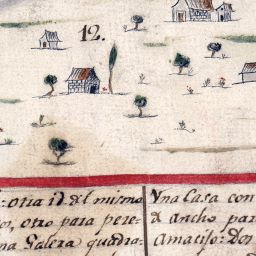 12.
: otra id. del mismo
or, otro para pere-
na Galera quadra-
Vna Casa con
d ancho par
amacijo: Dor